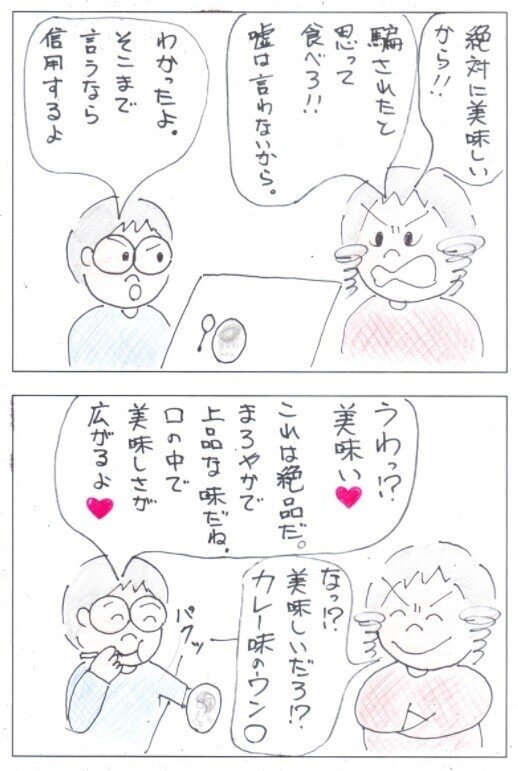 絶対に美味しい
から!!
騙されたと
思って
食べろ!!
嘘は言わないから。
わかったよ。
そこまで
言うなら
信用するよ
うわっ!?
美味い♥
これは絶品だ。
まろやかで
上品な味だね。
口の中で
美味しさが
広がるよ♥
なっ!?
美味しいだろ!?
カレー味のウン〇
パクッ